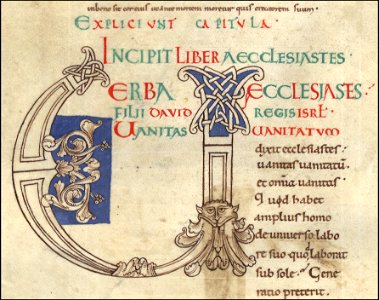 in bono sit cor eius va ante mortem moretur quis oratorem suum.
EXPLICIUNT CAPITULA.
INCIPIT LIBER AECCLESIASTES
ERBA AECCLESIASTES
FILII DAVID REGIS ISRL
VANITAS VANITATUM
dixit ecclesiastes
uanitas uanitatu
et omia uanitas
Quod habet
amplius homo
de uniuerso labo
re suo quo laborat
sub sole. Gene
ratio preterit.